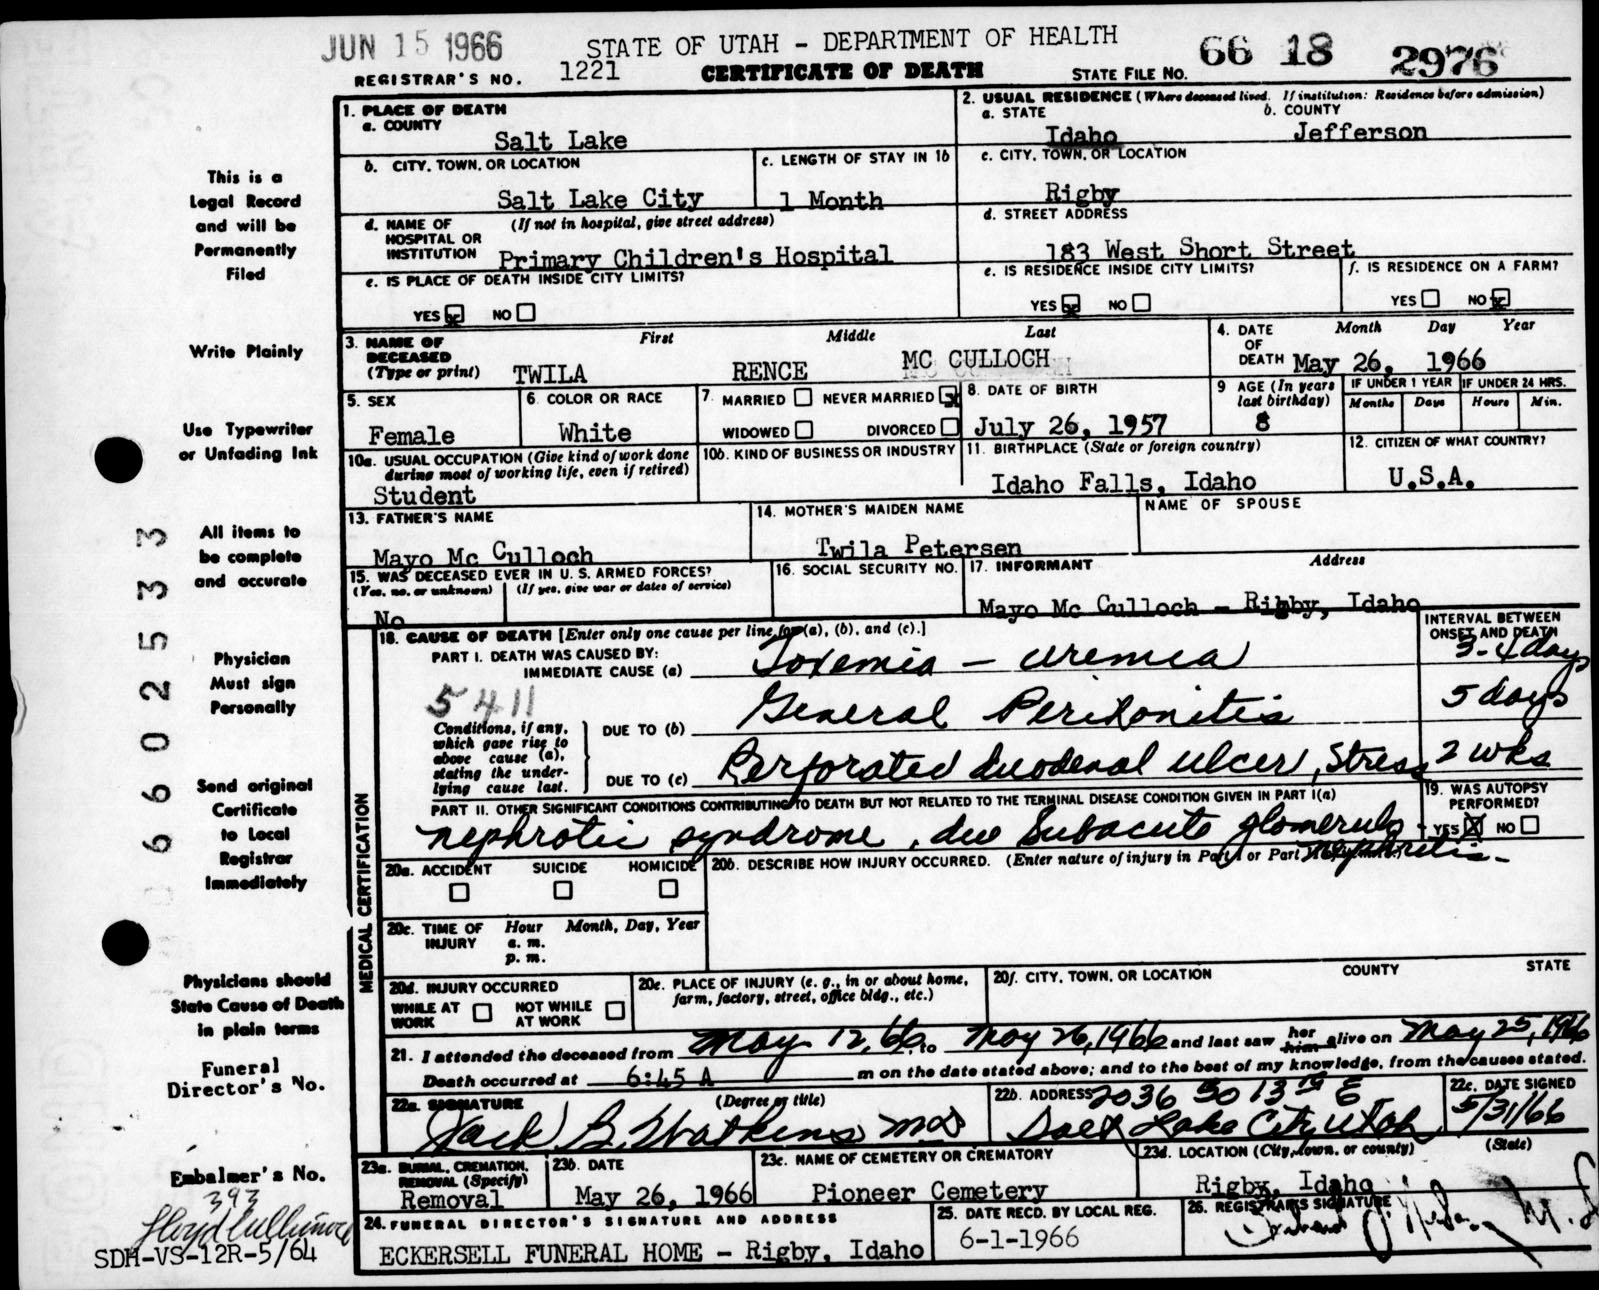 JUN 15 1966
STATE OF UTAH - DEPARTMENT OF HEALTH
66 18 2976
REGISTRAR'S NO. 1221
CERTIFICATE OF DEATH
STATE FILE NO.
1. PLACE OF DEATH
a. COUNTY
Salt Lake
2. USUAL RESIDENCE (Where deceased lived. If institution: Residence before admission)
a. STATE
Idaho
b. COUNTY
Jefferson
b. CITY, TOWN, OR LOCATION
Salt Lake City
c. LENGTH OF STAY IN 1b
1 Month
c. CITY, TOWN, OR LOCATION
Rigby
d. NAME OF HOSPITAL OR INSTITUTION (If not in hospital, give street address)
Primary Children's Hospital
d. STREET ADDRESS
183 West Short Street
e. IS PLACE OF DEATH INSIDE CITY LIMITS?
YES x NO
e. IS RESIDENCE INSIDE CITY LIMITS?
YES x NO
f. IS RESIDENCE ON A FARM?
YES NO x
3. NAME OF DECEASED (Type or print)
First Middle Last
TWILA RENCE MC CULLOCH
4. DATE OF DEATH
Month Day Year
May 26, 1966
5. SEX
Female
6. COLOR OR RACE
White
7. MARRIED NEVER MARRIED x
WIDOWED DIVORCED
8. DATE OF BIRTH
July 26, 1957
9 AGE (In years last birthday)
8
IF UNDER 1 YEAR IF UNDER 24 HRS.
Months Days Hours Min.
10a. USUAL OCCUPATION (Give kind of work done during most of working life, even if retired)
Student
10b. KIND OF BUSINESS OR INDUSTRY
11. BIRTHPLACE (State or foreign country)
Idaho Falls, Idaho
12. CITIZEN OF WHAT COUNTRY?
U.S.A.
13. FATHER'S NAME
Mayo Mc Culloch
14. MOTHER'S MAIDEN NAME
Twila Petersen
NAME OF SPOUSE
15. WAS DECEASED EVER IN U.S. ARMED FORCES?
(Yes, no, or unknown) (If yes, give war or dates of service)
No
16. SOCIAL SECURITY NO.
17. INFORMANT Address
Mayo Mc Culloch - Rigby, Idaho
18. CAUSE OF DEATH [Enter only one cause per line for (a), (b), and (c).]
INTERVAL BETWEEN ONSET AND DEATH
PART I. DEATH WAS CAUSED BY:
IMMEDIATE CAUSE (a) Toxemia - uremia 3-4 days
5411
Conditions, if any, which gave rise to above cause (a), stating the underlying cause last.
DUE TO (b) General Peritonitis 5 days
DUE TO (c) Perforated duodenal ulcer, Stress 2 wks
PART II. OTHER SIGNIFICANT CONDITIONS CONTRIBUTING TO DEATH BUT NOT RELATED TO THE TERMINAL DISEASE CONDITION GIVEN IN PART I(a)
nephrotic syndrome, due Subacute glomerulo nephritis-
19. WAS AUTOPSY PERFORMED?
YES X NO
20a. ACCIDENT SUICIDE HOMICIDE
20b. DESCRIBE HOW INJURY OCCURRED. (Enter nature of injury in Part I or Part
20c. TIME OF INJURY Hour Month, Day, Year
a. m.
p. m.
20d. INJURY OCCURRED
WHILE AT WORK NOT WHILE AT WORK
20e. PLACE OF INJURY (e. g., in or about home, farm, factory, street, office bldg., etc.)
20f. CITY, TOWN, OR LOCATION COUNTY STATE
21. I attended the deceased from May 12, 66, to May 26, 1966 and last saw her him alive on May 25, 1966
Death occurred at 6:45 A m on the date stated above; and to the best of my knowledge, from the causes stated.
22a. SIGNATURE (Degree or title)
Jack B. Watkins MD
22b. ADDRESS 2036 So 13th E
Salt Lake City, Utah
22c. DATE SIGNED
5/31/66
23a. BURIAL, CREMATION, REMOVAL (Specify)
Removal
23b. DATE
May 26, 1966
23c. NAME OF CEMETERY OR CREMATORY
Pioneer Cemetery
23d. LOCATION (City, town, or county) (State)
Rigby, Idaho
24. FUNERAL DIRECTOR'S SIGNATURE AND ADDRESS
ECKERSELL FUNERAL HOME - Rigby, Idaho
25. DATE RECD. BY LOCAL REG.
6-1-1966
26. REGISTRAR'S SIGNATURE
MEDICAL CERTIFICATION
This is a
Legal Record
and will be
Permanently
Filed
Write Plainly
Use Typewriter
or Unfading Ink
All items to
be complete
and accurate
Physician
Must sign
Personally
Send original
Certificate
to Local
Registrar
Immediately
Physicians should
State Cause of Death
in plain terms
Funeral
Director's No.
Embalmer's No.
393
SDH-VS-12R-5/64
066025333